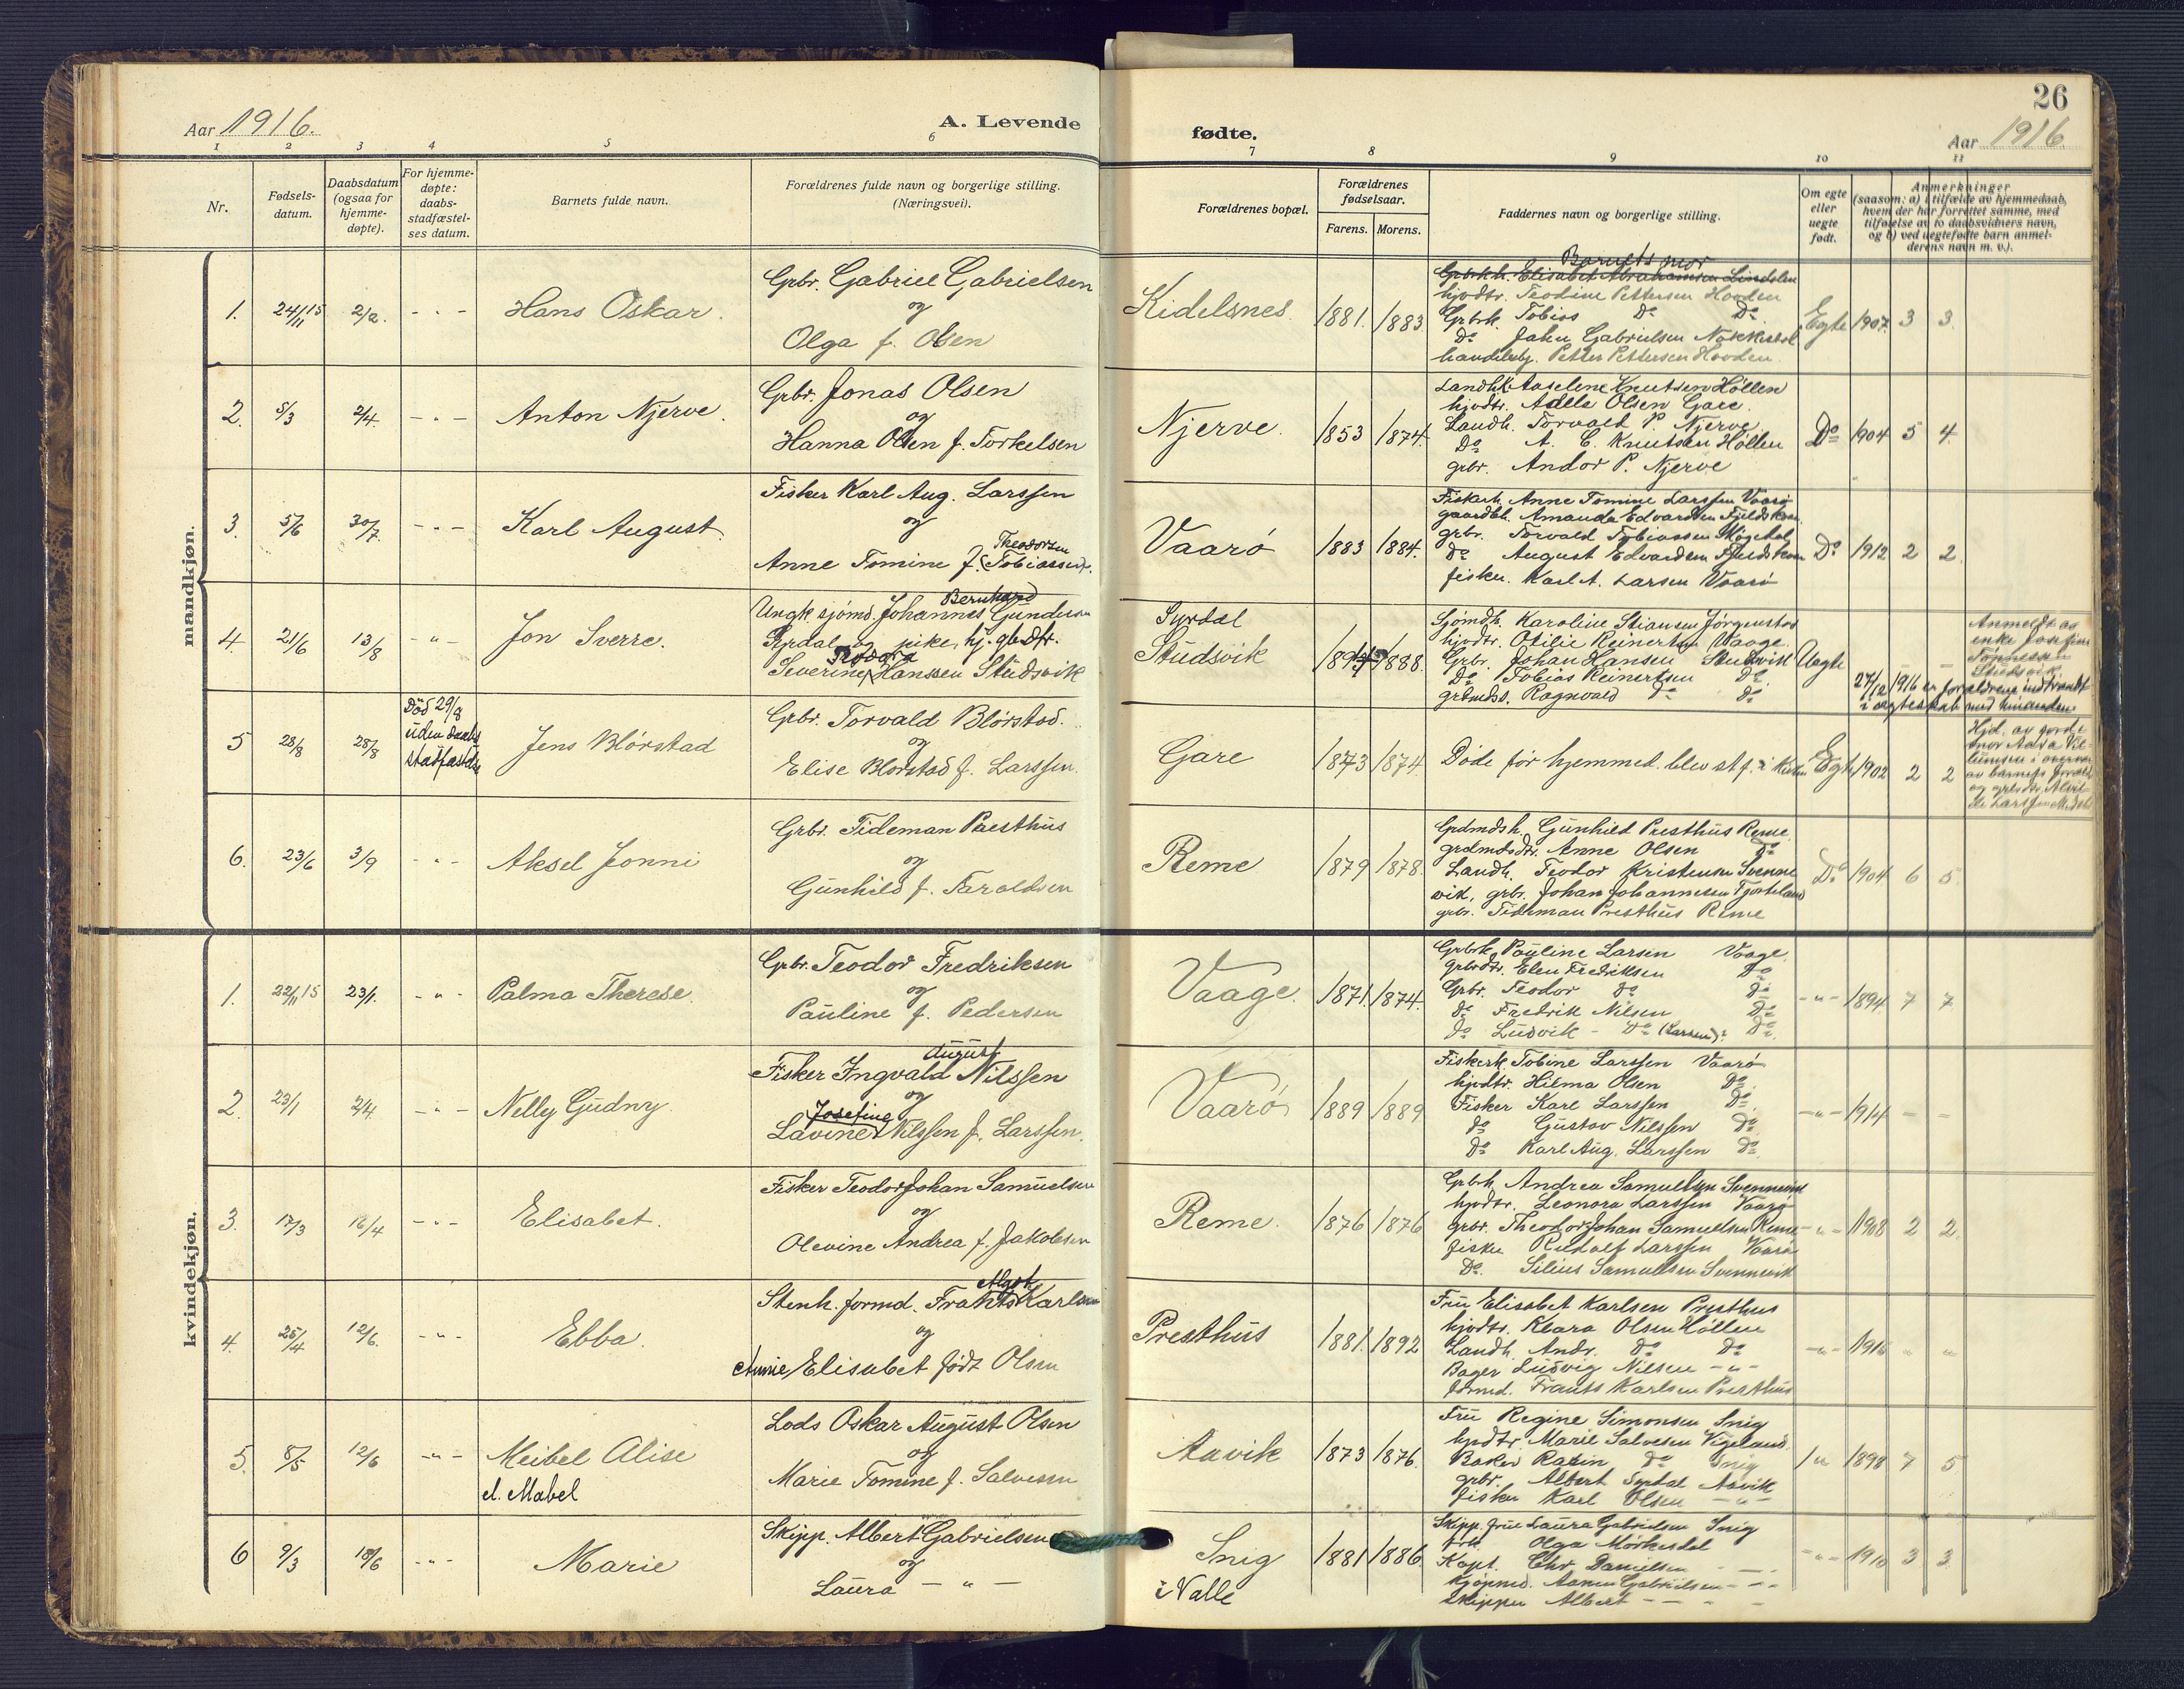 26
Aar 1916.
A. Levende
fødte.
Aar 1916.
1 2 3 4 5 6 7 8 9 10 11
Nr.
Fødsels-
datum.
Daabsdatum
(ogsaa for
hjemme-
døpte).
For hjemme-
døpte:
daabs-
stadfæstel-
ses datum.
Barnets fulde navn.
Forældrenes fulde navn og borgerlige stilling.
(Næringsvei).
Forældrenes bopæl.
Forældrenes
fødselsaar.
Farens. Morens.
Faddernes navn og borgerlige stilling.
Om egte
eller
uegte
født.
Anmerkninger
(saasom: a) i tilfælde av hjemmedaab,
hvem der har forrettet samme, med
tilføielse av to daabsvidners navn,
og b) ved uegtefødte barn anmel-
derens navn m. v.).
mandkjøn.
1. 24/11 15 2/2. - " - Hans Oskar.
Grbr. Gabriel Gabrielsen
og
Olga f. Olsen
Kidelsnes. 1881. 1883
Barnets mor
Grbrh. Elisabet Abrahamsen Lindalen
hjvdtr. Teodine Pettersen Hovden
Grbrh. Tobias Do Do
Do Jakn Gabrielsen
handelsbg. Petter Pettersen Hovden.
Egte 1907 3 3.
2. 5/3 2/4 - " - Anton Njerve.
Grbr. Jonas Olsen
og
Hanna Olsen f. Torkelsen
Njerve. 1853 1874.
Landhk. Aaselene Knutsen Höllen
hjvdtr. Adele Olsen Gare.
Landh. Torvald P. Njerve
Do A. C. Knutsen Höllen
grbr. Andor P. Njerve
Do 1904 5 4.
3 5/6 30/7 - " - Karl August
Fisker Karl Aug. Larssen
og
Theodorsen
Anne Tomine f. (Tobiassen).
Vaarö 1883 1884.
Fiskerh. Anne Tomine Larssen Vaarö
gaardbh. Amanda Edvardsen
grbr. Torvald Tobiassen
Do August Edvardsen
fisker. Karl A. Larsen Vaarö
Do 1912 2 2.
4. 21/6 13/8 - " - Jon Sverre.
Bernhard
Ungk. sjömd. Johannes Gundersen
Syrdal og pike, hj. gbdtr.
Teodora
Severine Hanssen Studsvik
Syrdal
Studsvik 1888.
Sjömdh. Karoline Stiansen Jörgenstad
hjvdtr. Otilie Reinertsen Vaage
Grbr. Johan Hansen Studsvik
Do Tobias Reinertsen Do
grbmds. Ragnvald Do Do
Uegte
Anmeldt av
enke Josefine
Tönnessen
Studsvik
27/12 1916 er forældrene indtraadt
i ægteskab med hinanden.
5 28/8 28/8
Död 29/8
uden daabs
stadfæstelse
Jens Blörstad
Grbr. Torvald Blörstad.
og
Elise Blörstad f. Larssen.
Gare 1873 1874.
Döde för hjemmed. blev st.f. i Kirken
Egte 1902 2 2
6. 23/6 3/9 - " - Aksel Jonni
Grbr. Tideman Presthus
og
Gunhild f. Taraldsen
Reme 1879 1878.
Grdmdsh. Gunhild Presthus Reme
grdmdsdtr. Anne Olsen Do
Landh. Teodor Kristensen Svenne
vik, grbr. Johan Johannesen
grbr. Tideman Presthus Reme
Do 1904 6 5.
kvindekjøn.
1. 22/11 15 23/1. - " - Palma Therese.
Grbr. Teodor Fredriksen
og
Pauline f. Pedersen
Vaage. 1871. 1874.
Grbrh. Pauline Larsen Vaage.
grbrdtr. Elen Fredriksen Do
Grbr. Teodor Do Do
Do Fredrik Nilsen Do
Do Ludvik - Do (Larsen)? Do
- " - 1894. 7 7.
2. 23/1 2/4. - " - Nelly Gudny.
August
Fisker Ingvald Nilssen
og
Josefine
Lavine Nilssen f. Larssen.
Vaarö 1889 1889
Fiskerh. Tobine Larssen Vaarö
hjvdtr. Hilma Olsen Do
Fisker Karl Larssen Do
Do Gustav Nilssen Do
Do Karl Aug. Larssen Do
- " - 1914 - -
3. 17/3 16/4 - " - Elisabet.
Fisker Teodor Johan Samuelsen
og
Olevine Andrea f. Jakobsen
Reme. 1876 1876
Grbrh. Andrea Samuelsen Svennevik
hjvdtr. Leonora Larssen Vaarö
grbr. Theodor Johan Samuelsen Reme
fisker Rudolf Larssen Vaarö
Do. Silius Samuelsen Svennevik
- " - 1908 2 2.
4. 25/4 12/6. - " - Ebba.
Algot
Stenh. formd. Frants Karlsen
og
Annie Elisabet född Olsen
Presthus 1881. 1892
Fru Elisabet Karlsen Presthus
hjvdtr. Klara Olsen Höllen
Landh. Andr. Do Do
Bager Ludvig Nilsen - " -
formd. Frants Karlsen Presthus
- " - 1915 " "
5. 8/5 12/6 - " - Meibel Alise
el. Mabel
Lods Oskar August Olsen
og
Marie Tomine f. Salvesen
Aavik 1873 1876.
Fru Regine Simonsen Snig
hjvdtr. Marie Salvesen Vigeland.
Baker Do Snig
grbr. Albert Syrdal Aavik
fisker Karl Olsen - " -
1898 7 5
6 9/3 18/6 - " - Marie
Skipp. Albert Gabrielsen
og
Laura - " -
Snig
i Valle
1881 1886
Skipp. frue Laura Gabrielsen Snig
frk. Olga Mörkesdal
Kapt. Chr. Danielsen - " -
Kjöpmd. Aanen Gabrielsen - " -
Skipper Albert - -
- " - 1910 3 3.